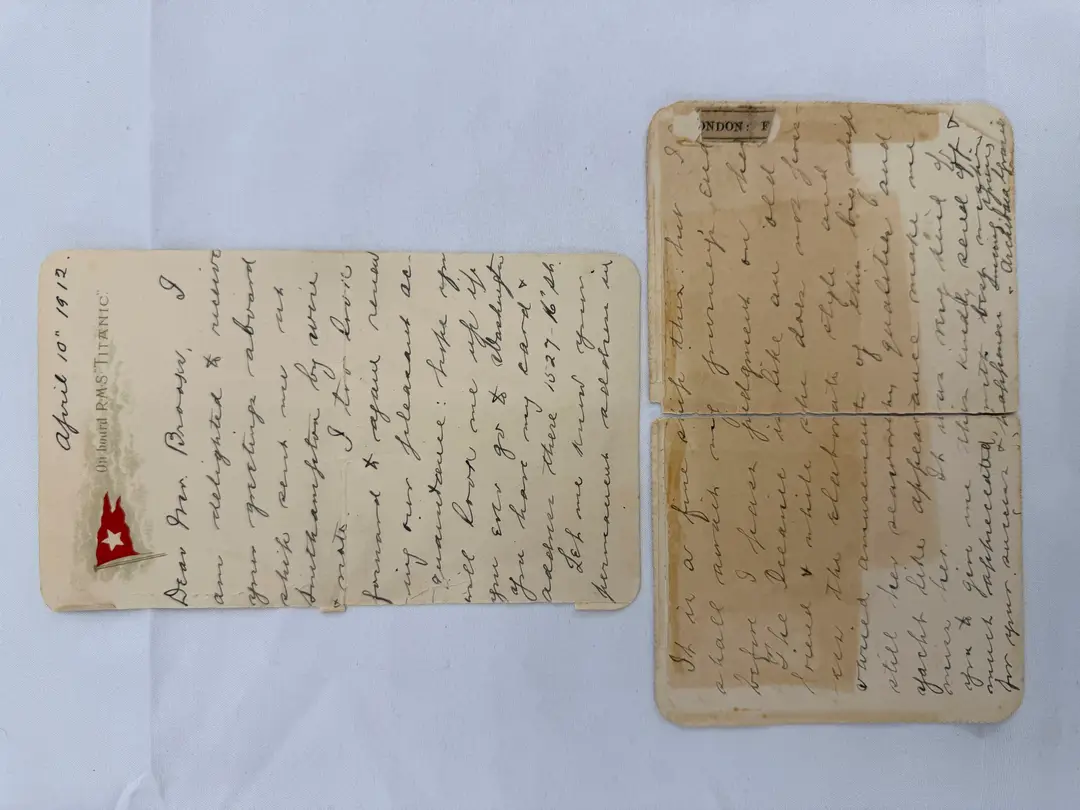 April 10" 1912.
On board R.M.S "TITANIC".
Dear Mr. I
am delighted & receive
your greetings aboard
ship sent me at
Southampton by wire
note. I too look
forward & again renew
ing our pleasant ac-
quaintance: hope you
will look me up if
you ever go to Washington
you have my card &
address there 1527-16" St.
Let me know your
permanent address in
ONDON: F
It is a fine ship this, but I
shall await my journey's end
before I pass judgment on her
The Oceanic is like an old
friend & while she does not poss-
ess the elaborate style and
varied amusements of this big ship
still her seaworthy qualities and
yacht like appearance make me
miss her. It was very kind of
you to give me this kindly send off &
much appreciated, with best wishes
for your success & happiness, yours
Archibald Gracie